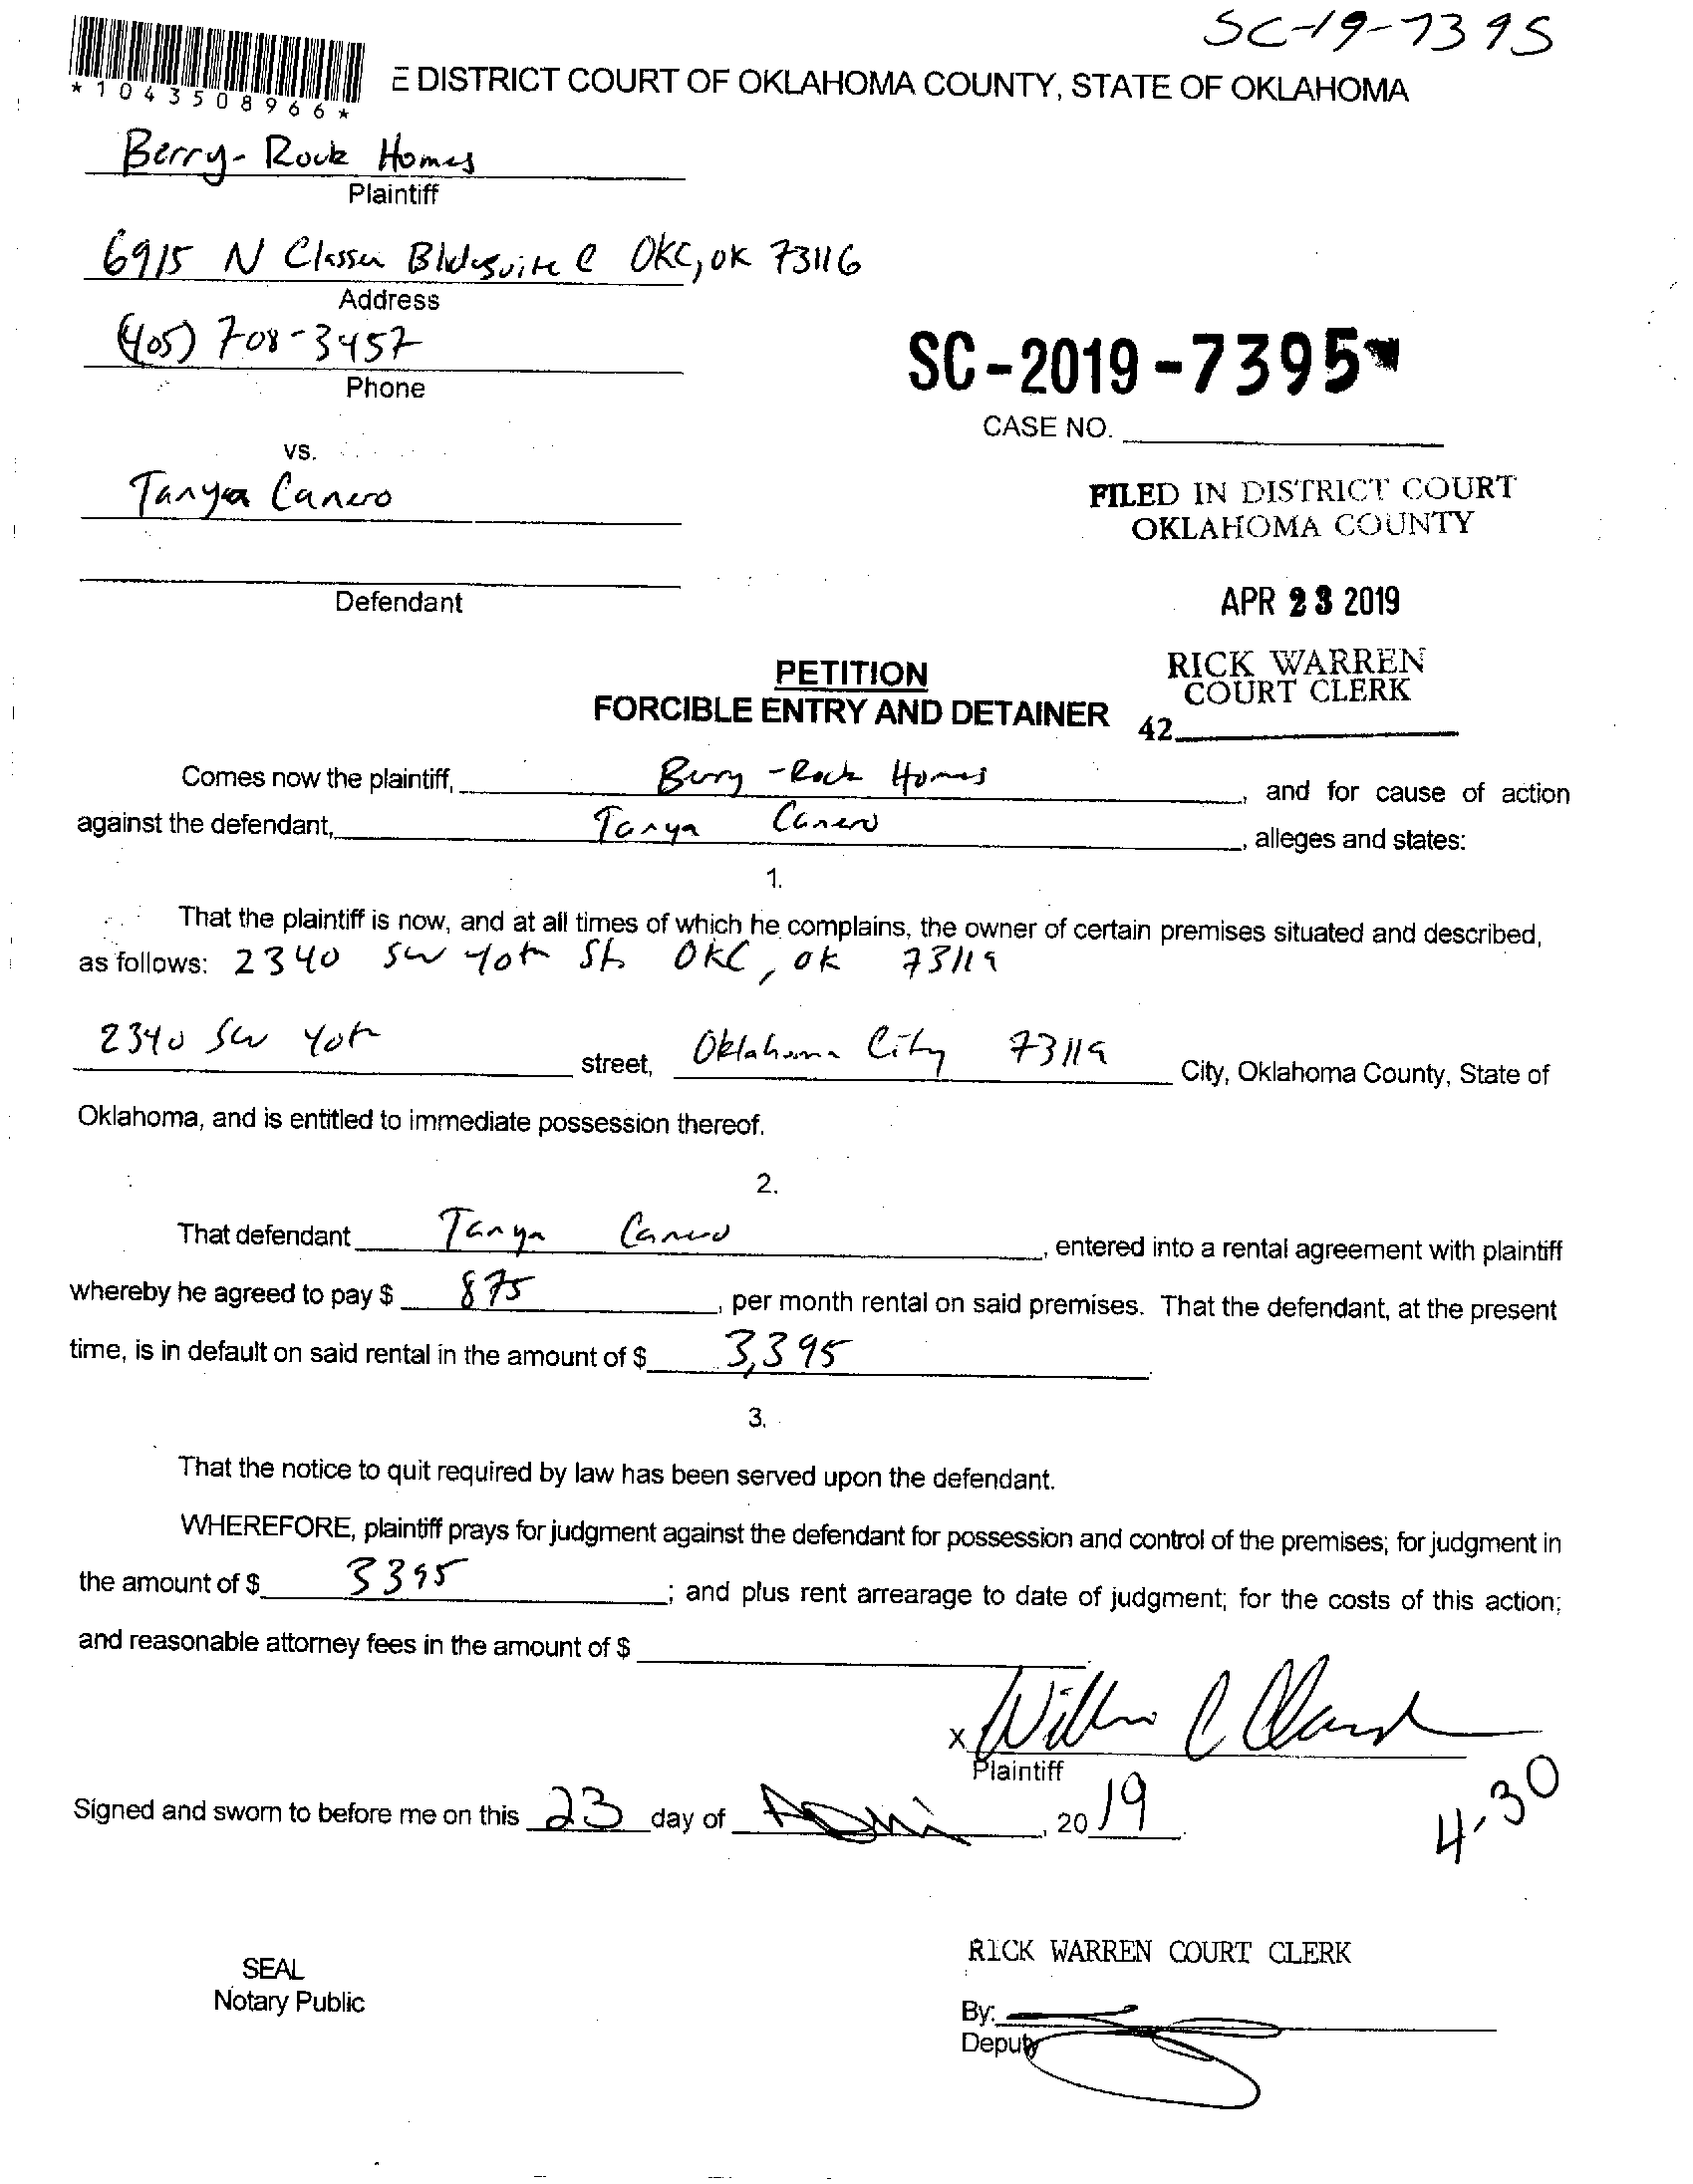 SC-19-7395
*1043508966*
E DISTRICT COURT OF OKLAHOMA COUNTY, STATE OF OKLAHOMA
Berry-Rock Homes
Plaintiff
6915 N Classen Blvd suite C OKC, OK 73116
Address
(405) 708-3457
Phone
SC-2019-7395
CASE NO.
vs.
Tanya Canero
FILED IN DISTRICT COURT
OKLAHOMA COUNTY
Defendant
APR 23 2019
PETITION
RICK WARREN
COURT CLERK
FORCIBLE ENTRY AND DETAINER
42
Comes now the plaintiff, Berry-Rock Homes, and for cause of action
against the defendant, Tanya Canero, alleges and states:
1.
That the plaintiff is now, and at all times of which he complains, the owner of certain premises situated and described,
as follows: 2340 SW 40th St OKC, OK 73119
2340 SW 40th street, Oklahoma City 73119 City, Oklahoma County, State of
Oklahoma, and is entitled to immediate possession thereof.
2.
That defendant Tanya Canero, entered into a rental agreement with plaintiff
whereby he agreed to pay $ 875, per month rental on said premises. That the defendant, at the present
time, is in default on said rental in the amount of $ 3,395
3.
That the notice to quit required by law has been served upon the defendant.
WHEREFORE, plaintiff prays for judgment against the defendant for possession and control of the premises; for judgment in
the amount of $ 3395; and plus rent arrearage to date of judgment; for the costs of this action;
and reasonable attorney fees in the amount of $
X
Plaintiff
Signed and sworn to before me on this 23 day of April, 2019
4.30
RICK WARREN COURT CLERK
SEAL
Notary Public
By:
Deputy